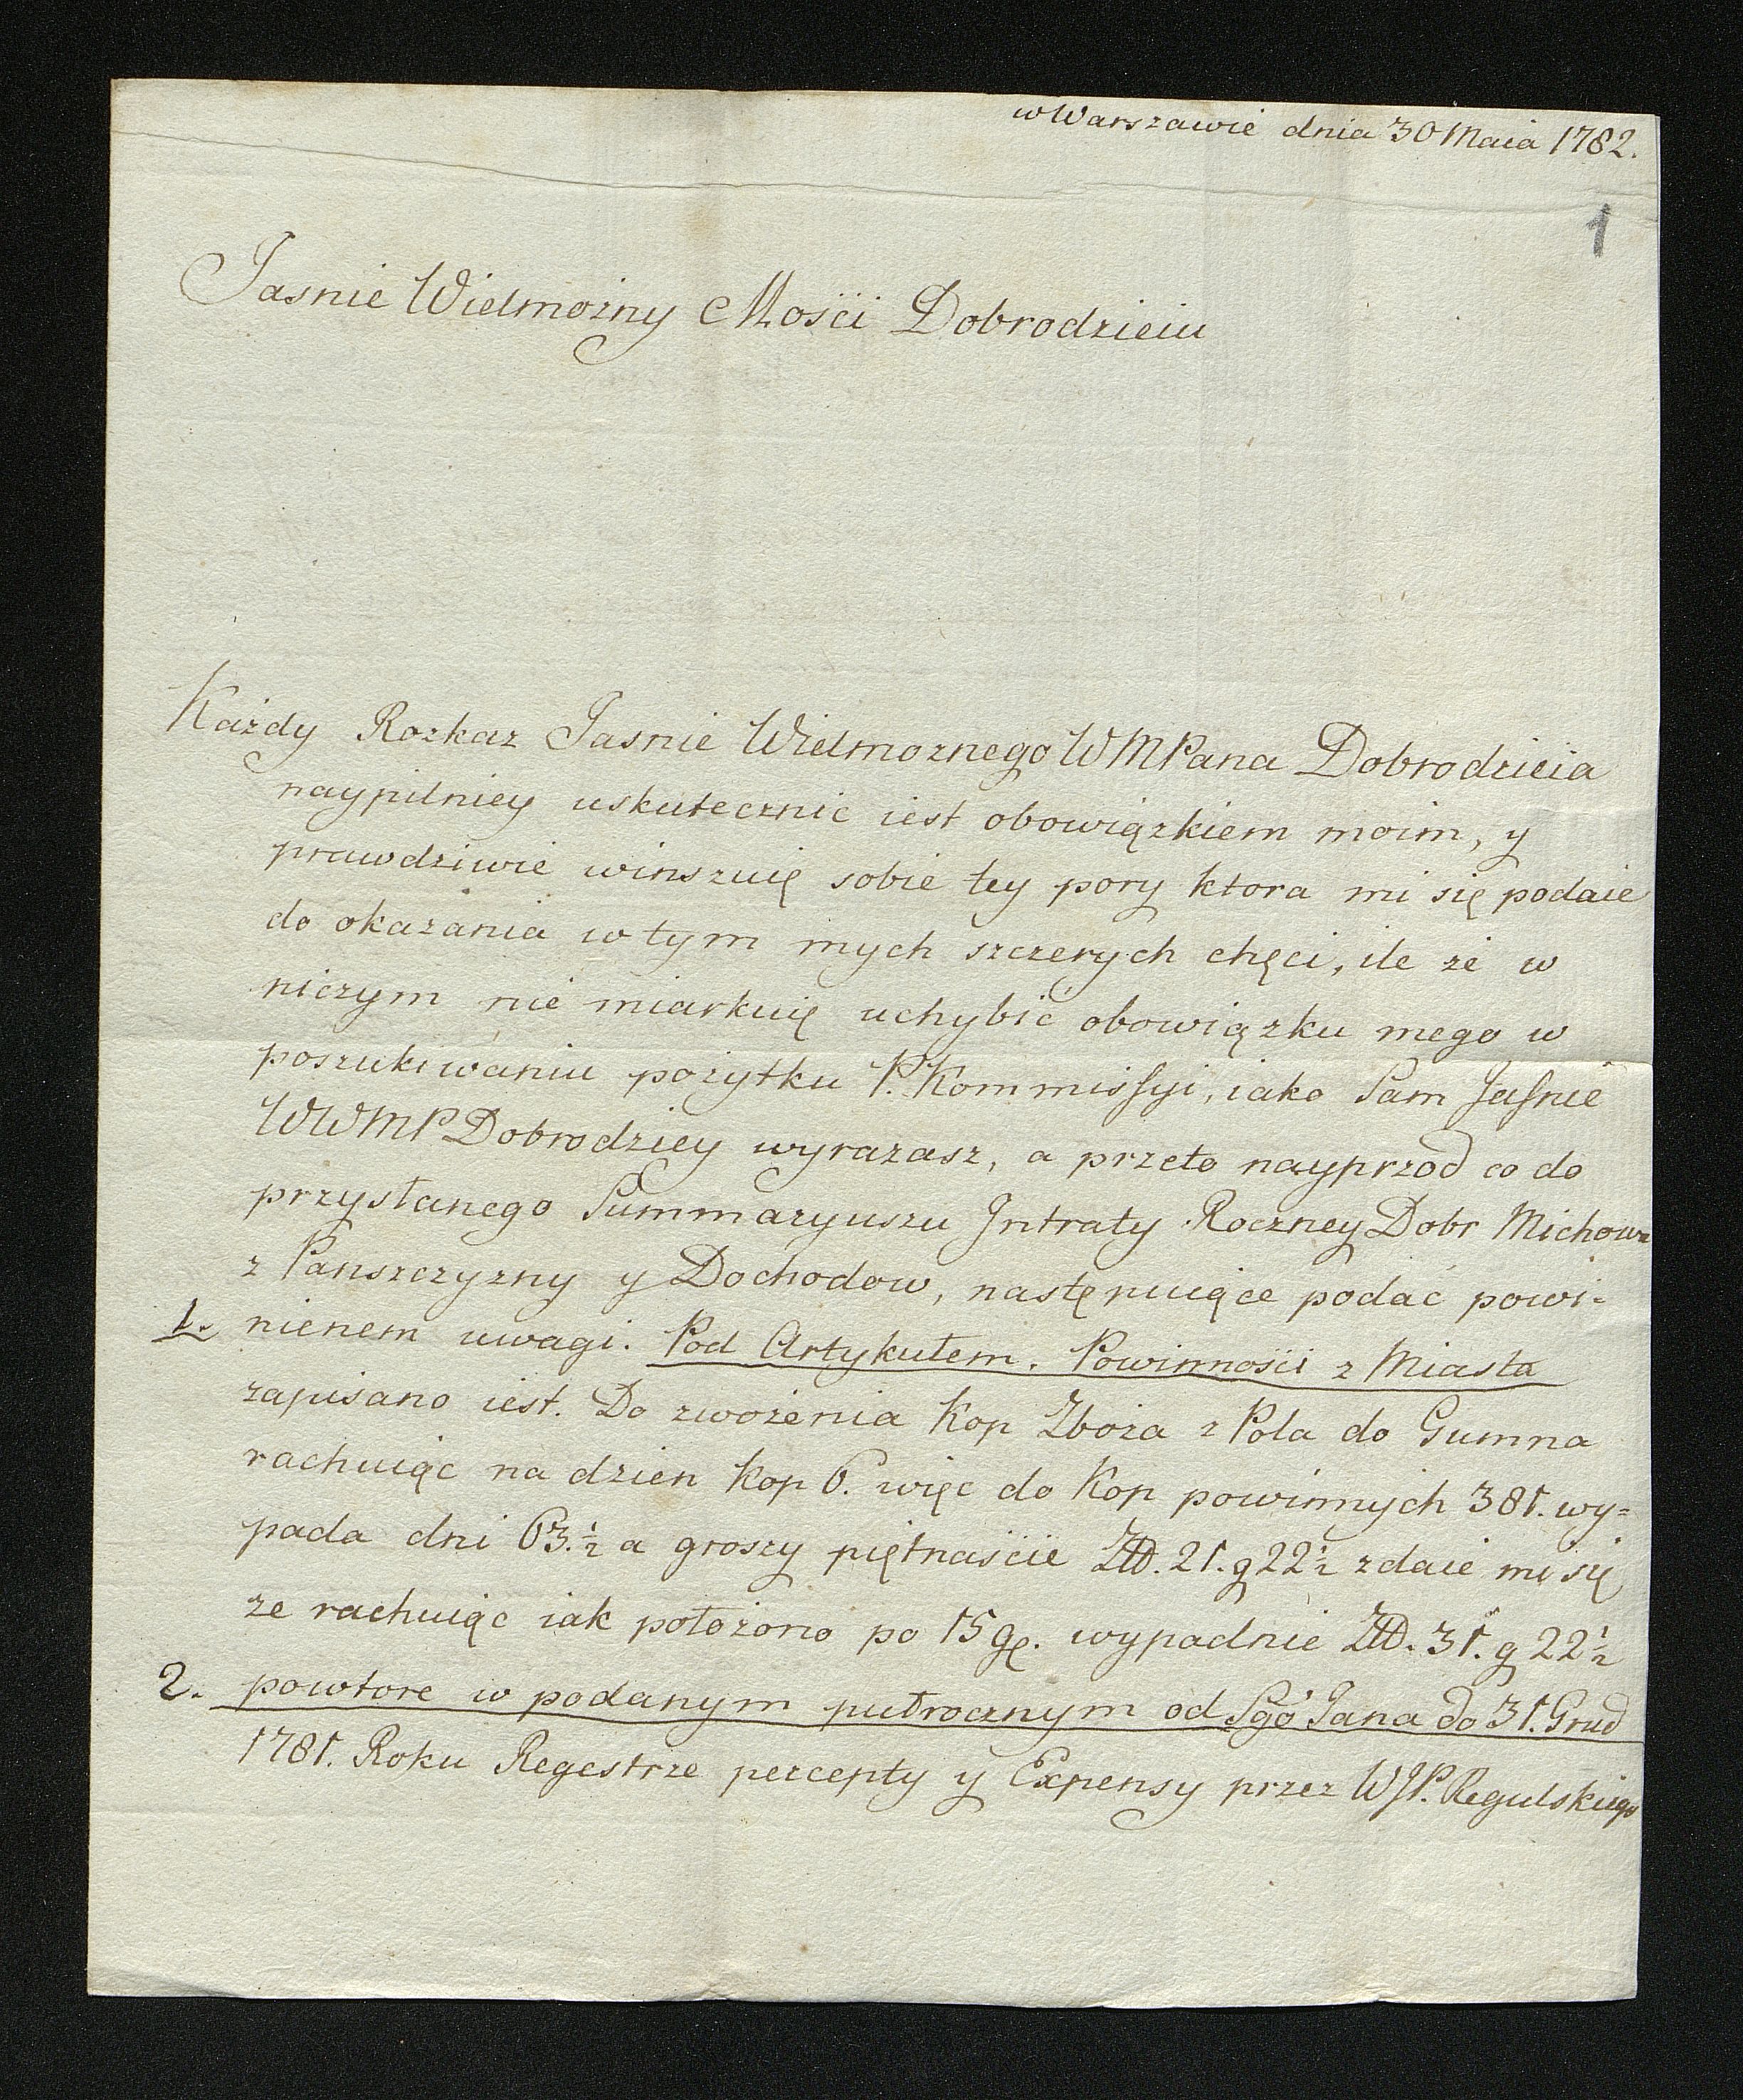 w Warszawie dnia 30 Maia 1782.
1
Jasnie Wielmożny Mości Dobrodzieiu
Każdy Rozkaz Jasnie Wielmożnego WMPana Dobrodzieia
naypilniey uskutecznic iest obowiązkiem moim, y
prawdziwie winszuię sobie tey pory ktora mi się podaie
do okazania w tym mych szczerych chęci, ile że w
niczym nie miarkuię uchybić obowiązku mego w
poszukiwaniu pożytku P. Kommissyi, iako Sam Jasnie
WWMP Dobrodziey wyrażasz, a przeto nayprzod co do
przysłanego Summaryuszu Jntraty Roczney Dobr Michowa
z Panszczyzny y Dochodow, następuiące podać powi-
1. nienem uwagi. Pod Artykułem. Powinności z Miasta
zapisano iest. Do zwożenia Kop Zboża z Pola do Gumna
rachuiąc na dzien kop 6. więc do Kop powinnych 381. wy=
pada dni 63.½ a groszy piętnaście Zł. 21. g 22½ zdaie mi się
że rachuiąc iak położono po 15 g. wypadnie Zł. 31. g 22½
2. powtore w podanym pułrocznym od Sgo Jana do 31. Grud
1781. Roku Regestrze percepty y Expensy przez WJP. Regulskiego